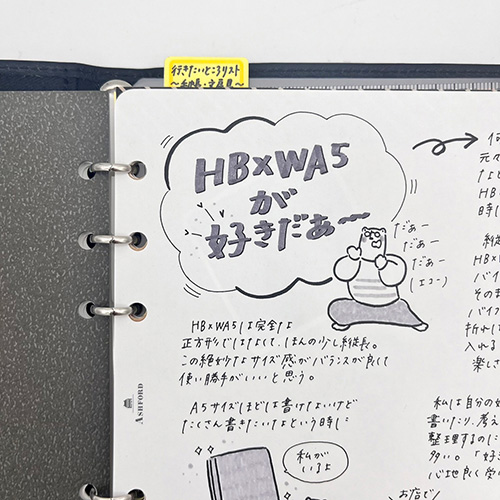 行きたいところリスト
〜手帳・文房具〜
HB×WA5
が
好きだぁ〜
だぁー
だぁー
だぁー
(エコー)
HB×WA5は完全な
正方形ではなくて、ほんの少し縦長。
この絶妙なサイズ感がバランスが良くて
使い勝手がいいと思う。
A5サイズほどは書けないけど
たくさん書きたいなという時に
私が
いるよ
ASHFORD
元々
なと
HB
時し
縦
HB×W
バイ
そのま
バイブ
折れ
入れる
楽しさ
私は自分の
書いたり、考え
整理するのに
多い。「好き
心地良く
お店で